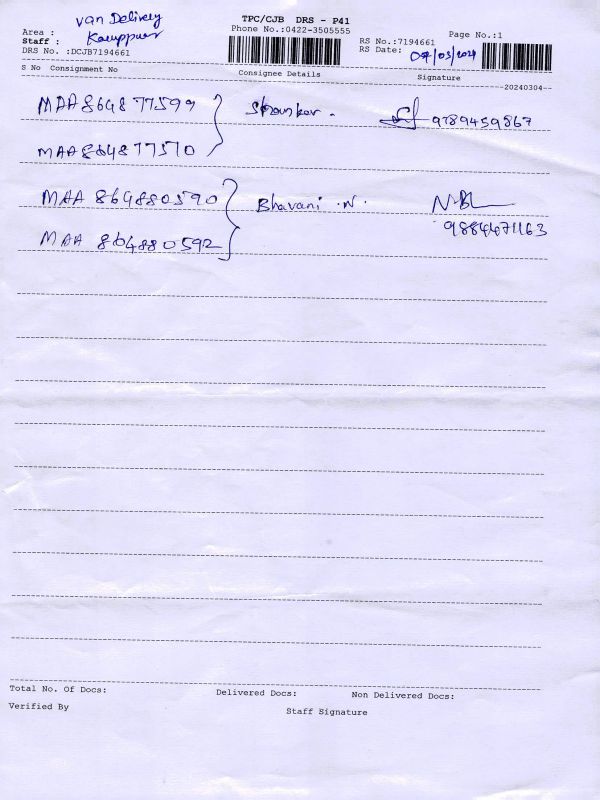 TPC/CJB DRS - P41
Area : Van Delivery
Phone No.:0422-3505555
Page No.:1
Staff : Karuppus
RS No.:7194661
DRS No. :DCJB7194661
RS Date: 07/03/2024
S No Consignment No Consignee Details Signature
--20240304--
MAA864877599 Shankar . 9789459867
MAA864877510
MAA 864880590 Bhavani .N. N.Bh
MAA 864880592 9884471163
Total No. Of Docs: Delivered Docs: Non Delivered Docs:
Verified By Staff Signature